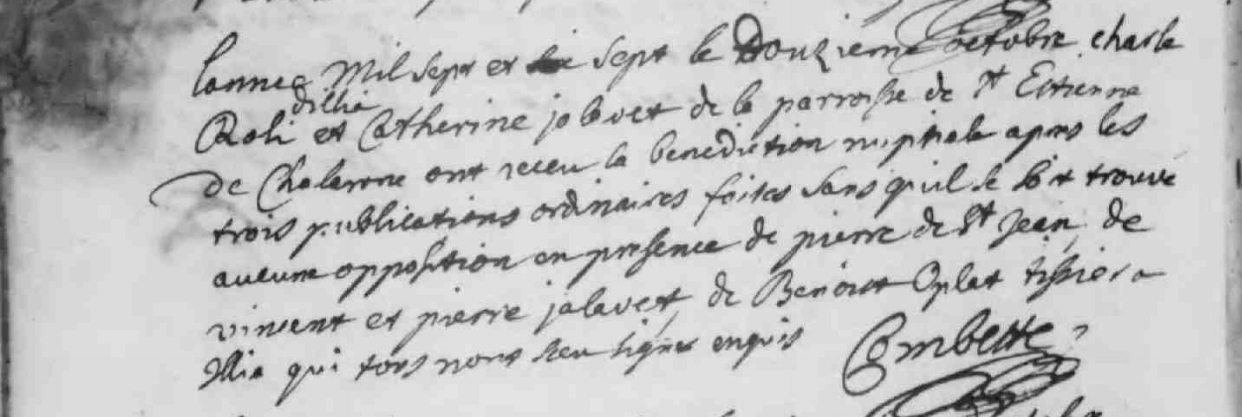 lannee Mil sept et sept le Douzieme octobre charle
dillia
Roli et Catherine jalavet de la parroisse de St Estienne
de Chalarone ont receu la benediction nuptiale apres les
trois publications ordinaires faites sans quil se soit trouvé
aucune opposition en presence de pierre de St Jean, de
vinsent et pierre jalavet, de Benoist Oplat tissier a
Illia qui tous nont sceu signer enquis
Combette